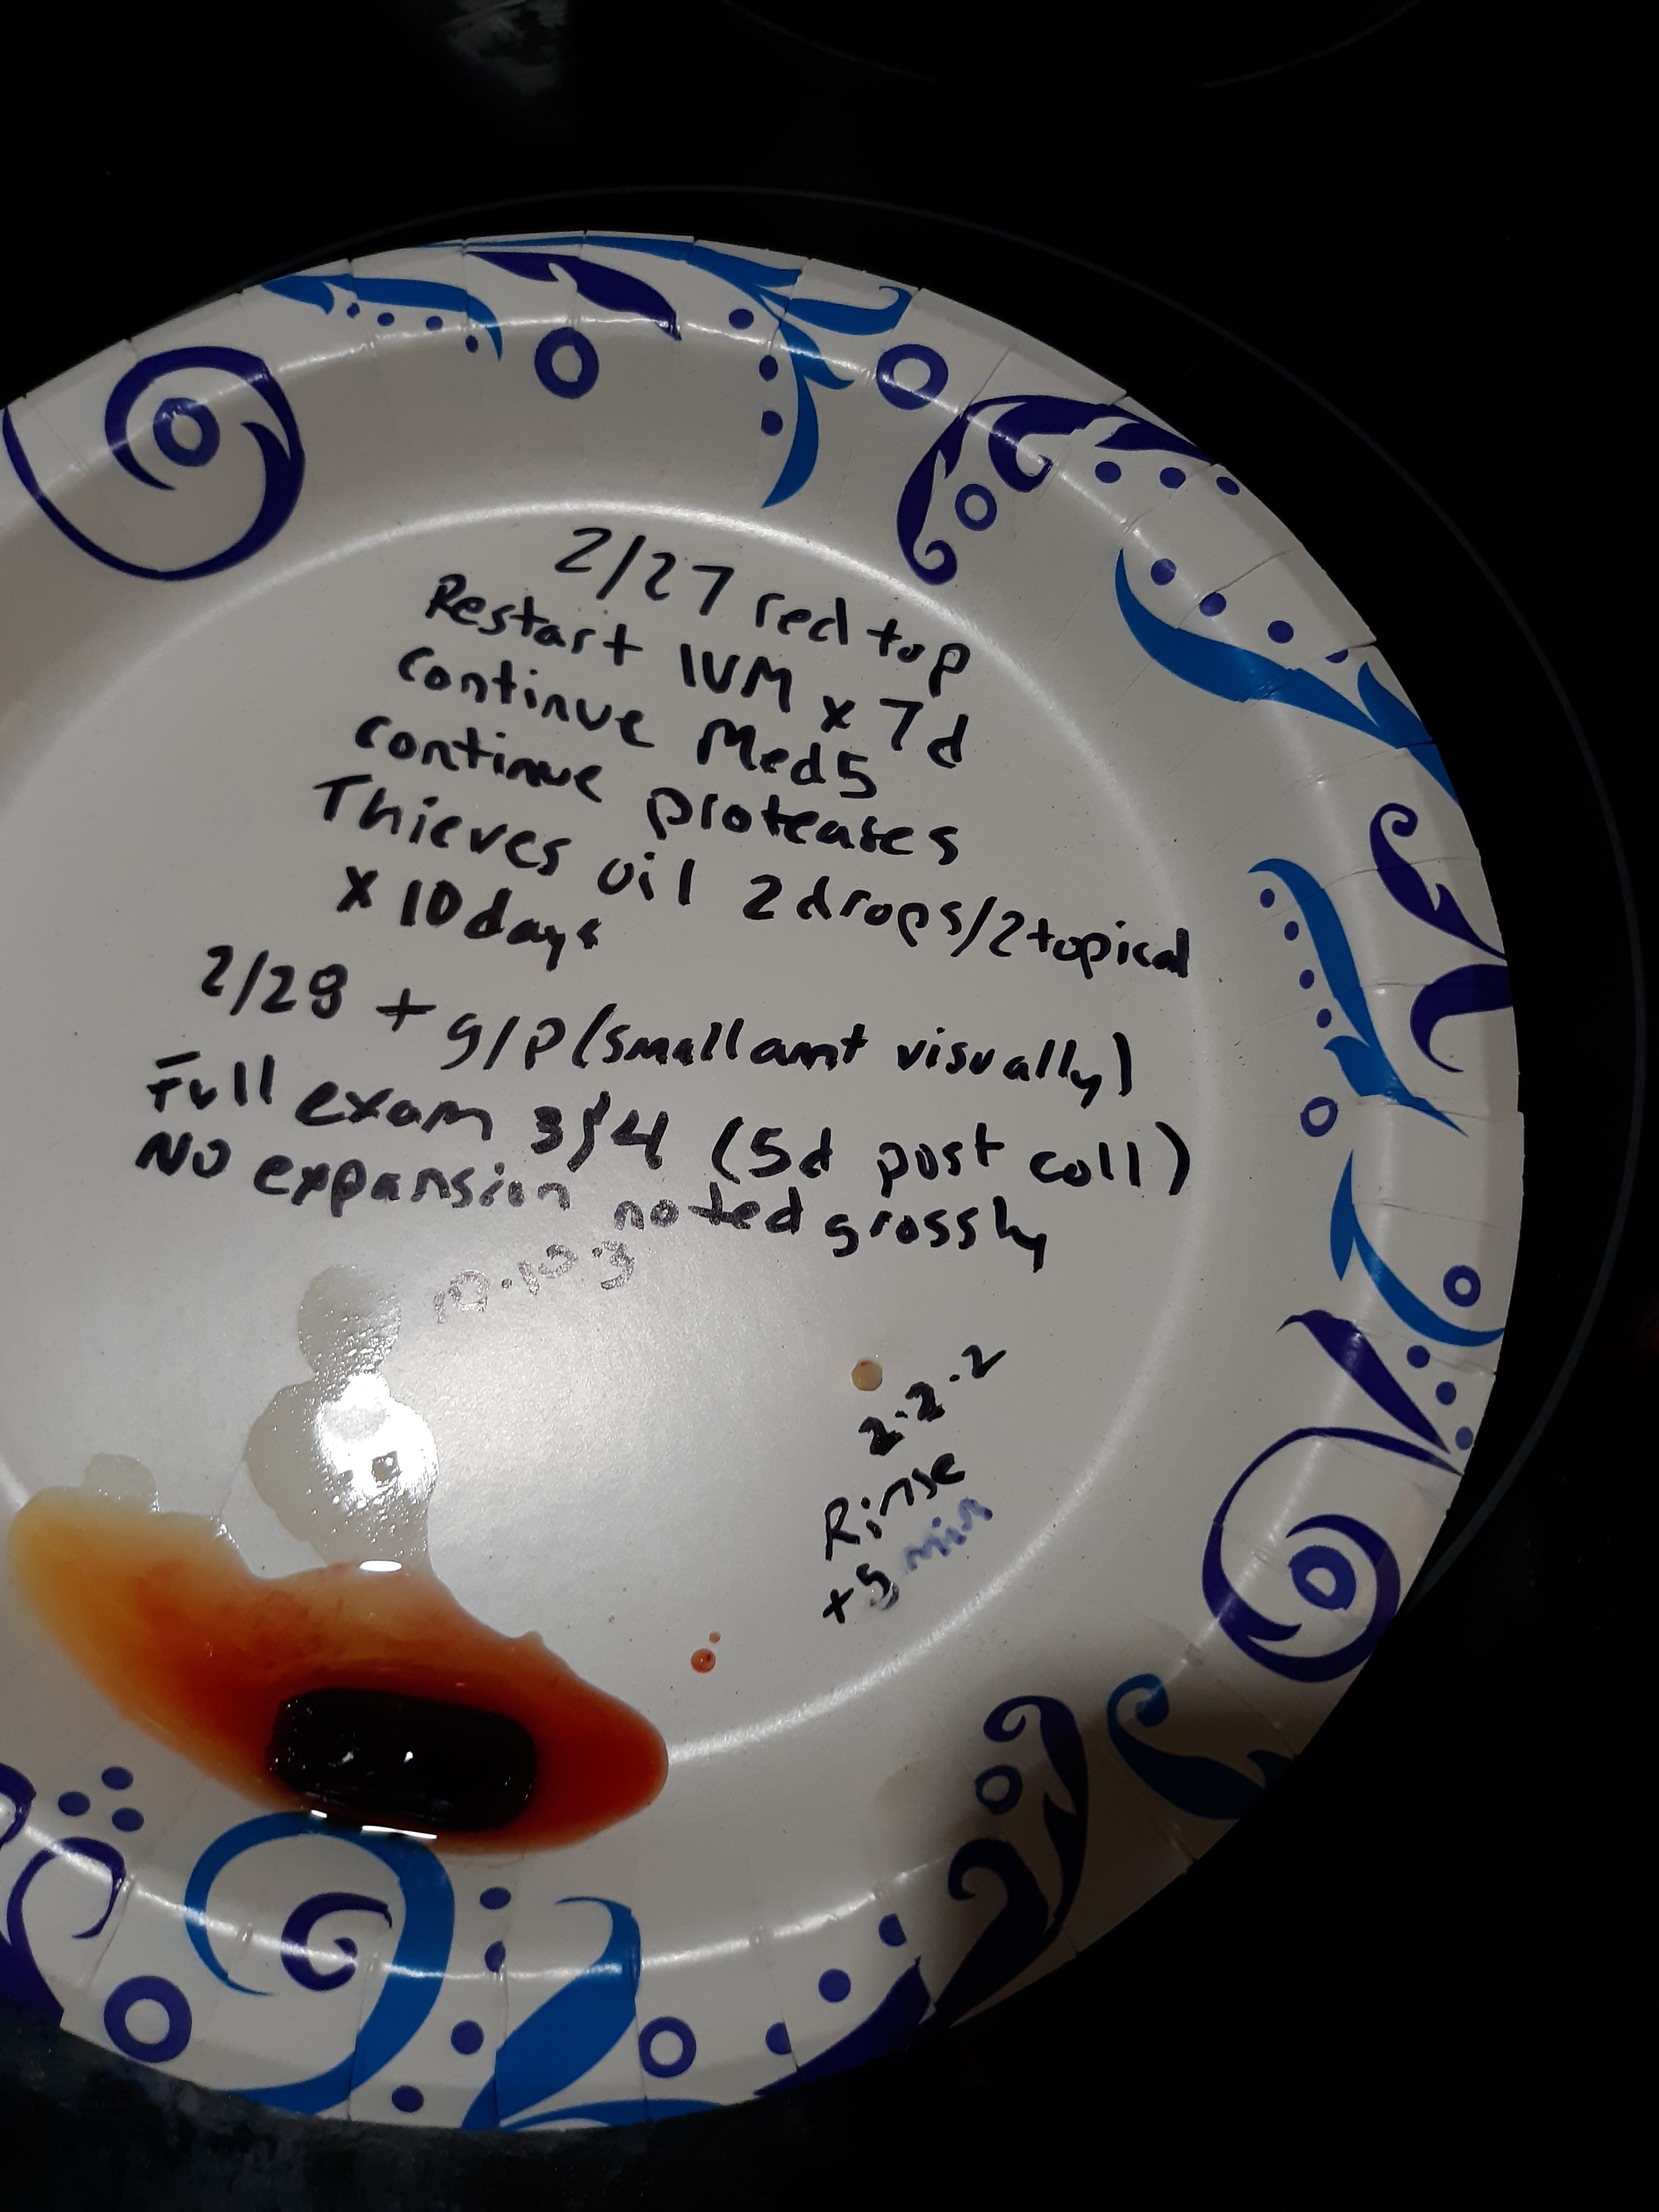 2/27 red top
Restart IVM x 7d
continue Med5
continue proteases
Thieves oil 2 drops/2 topical
x 10 days
2/28 + g/p (small amt visually)
Full exam 3/4 (5d post coll)
No expansion noted grossly
10.10.3
2.2.2
Rinse
+5 min